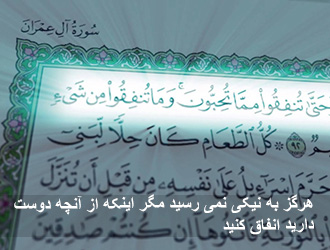 سُورَةُ آلِ عِمْرَان
حَتَّىٰ تُنفِقُوا۟ مِمَّا تُحِبُّونَ ۚ وَمَا تُنفِقُوا۟ مِن شَىْءٍ
۝٩٢ كُلُّ ٱلطَّعَامِ كَانَ حِلًّا لِّبَنِىٓ
حَرَّمَ إِسْرَٰٓءِيلُ عَلَىٰ نَفْسِهِۦ مِن قَبْلِ أَن تُنَزَّلَ
هرگز به نیکی نمی رسید مگر اینکه از آنچه دوست
دارید انفاق کنید
إِن كُنتُمْ صَٰدِقِينَ